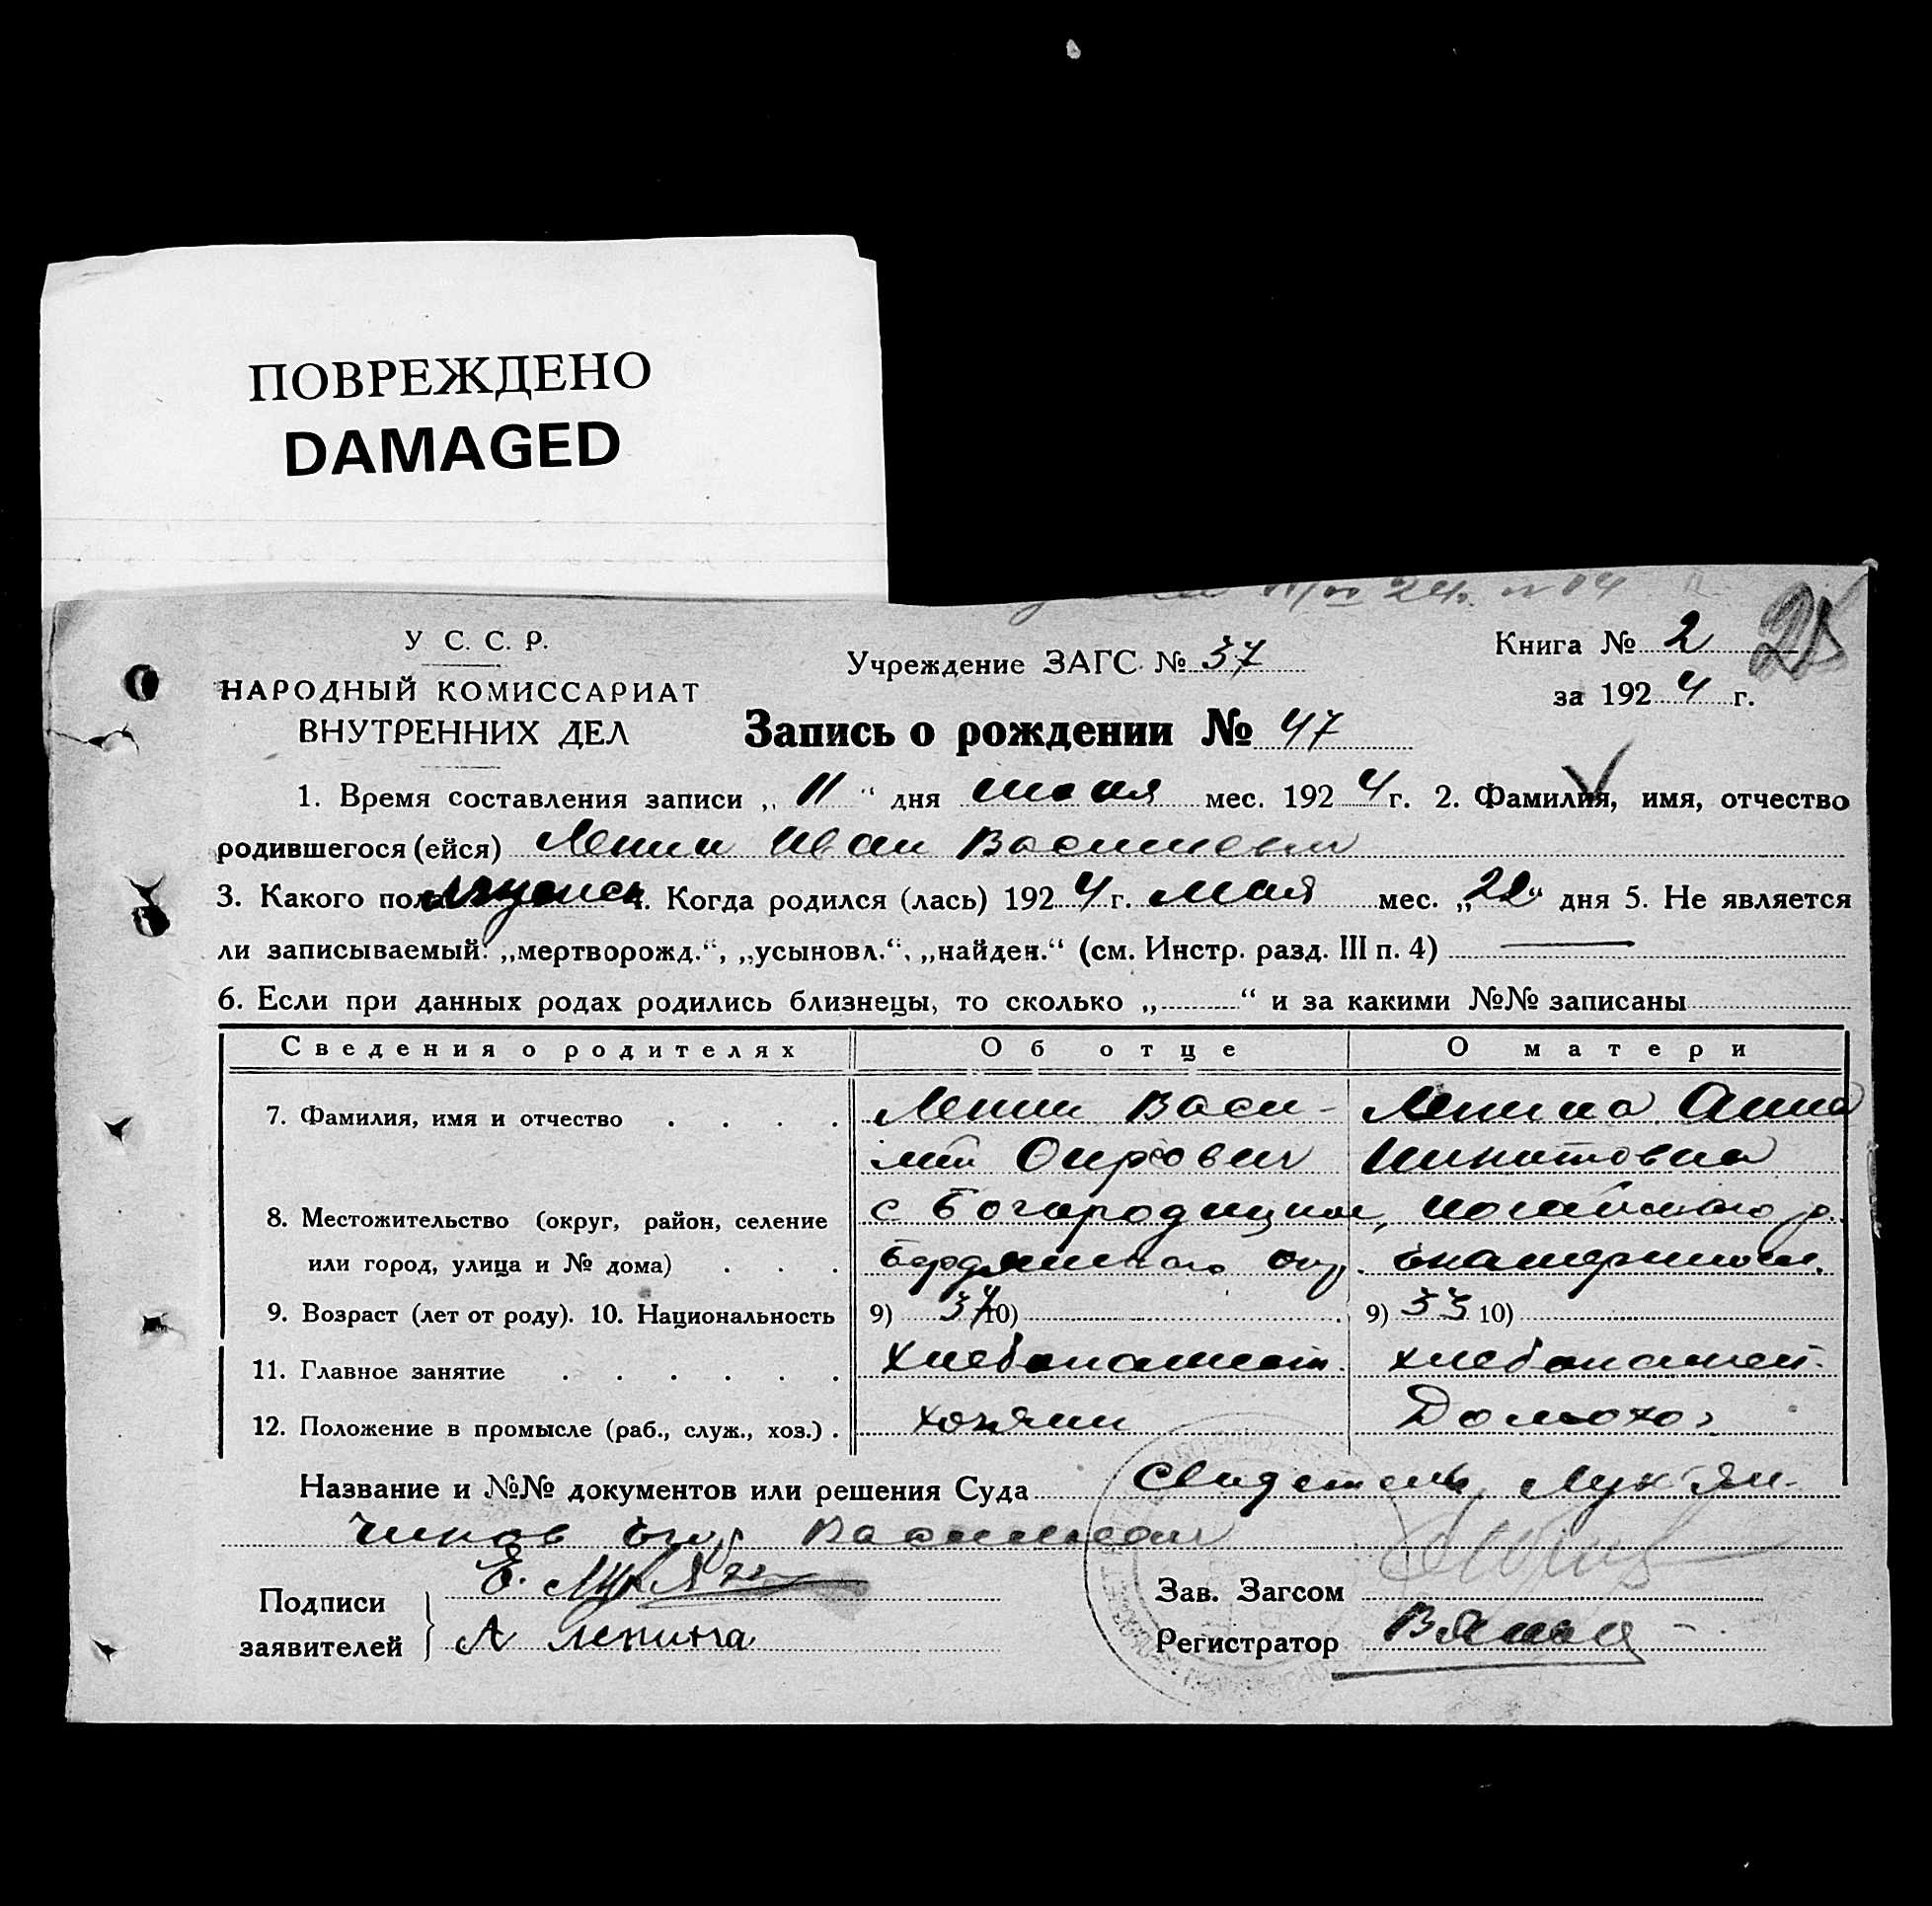 ПОВРЕЖДЕНО
DAMAGED
24.
У С. С. Р.
НАРОДНЫЙ КОМИССАРИАТ
ВНУТРЕННИХ ДЕЛ
Учреждение ЗАГС № 37
Книга № 2
за 1924 г.
Запись о рождении № 47
1. Время составления записи „11“ дня мес. 1924 г. 2. Фамилия, имя, отчество
родившегося (ейся) Ленин Иван Васильевич
3. Какого пола мужск. 4. Когда родился (лась) 1924 г. мая мес. „22“ дня 5. Не является
ли записываемый: „мертворожд.“, „усыновл.“, „найден.“ (см. Инстр. разд. III п. 4)
6. Если при данных родах родились близнецы, то сколько „ “ и за какими №№ записаны
Сведения о родителях Об отце О матери
7. Фамилия, имя и отчество Ленин Васи- Ленина Анна
лий
8. Местожительство (округ, район, селение с Богородицкое, Ногайского р.
или город, улица и № дома) Бердянского окр. Екатеринослав.
9. Возраст (лет от роду). 10. Национальность 9) 37 10) 9) 33 10)
11. Главное занятие хлебопашест. хлебопашест.
12. Положение в промысле (раб., служ., хоз.) хозяин Домохоз
Название и №№ документов или решения Суда Свидетель Лукьян-
чиков Егор Васильевич
Подписи
заявителей
Е.
А Ленина
Зав. Загсом
Регистратор